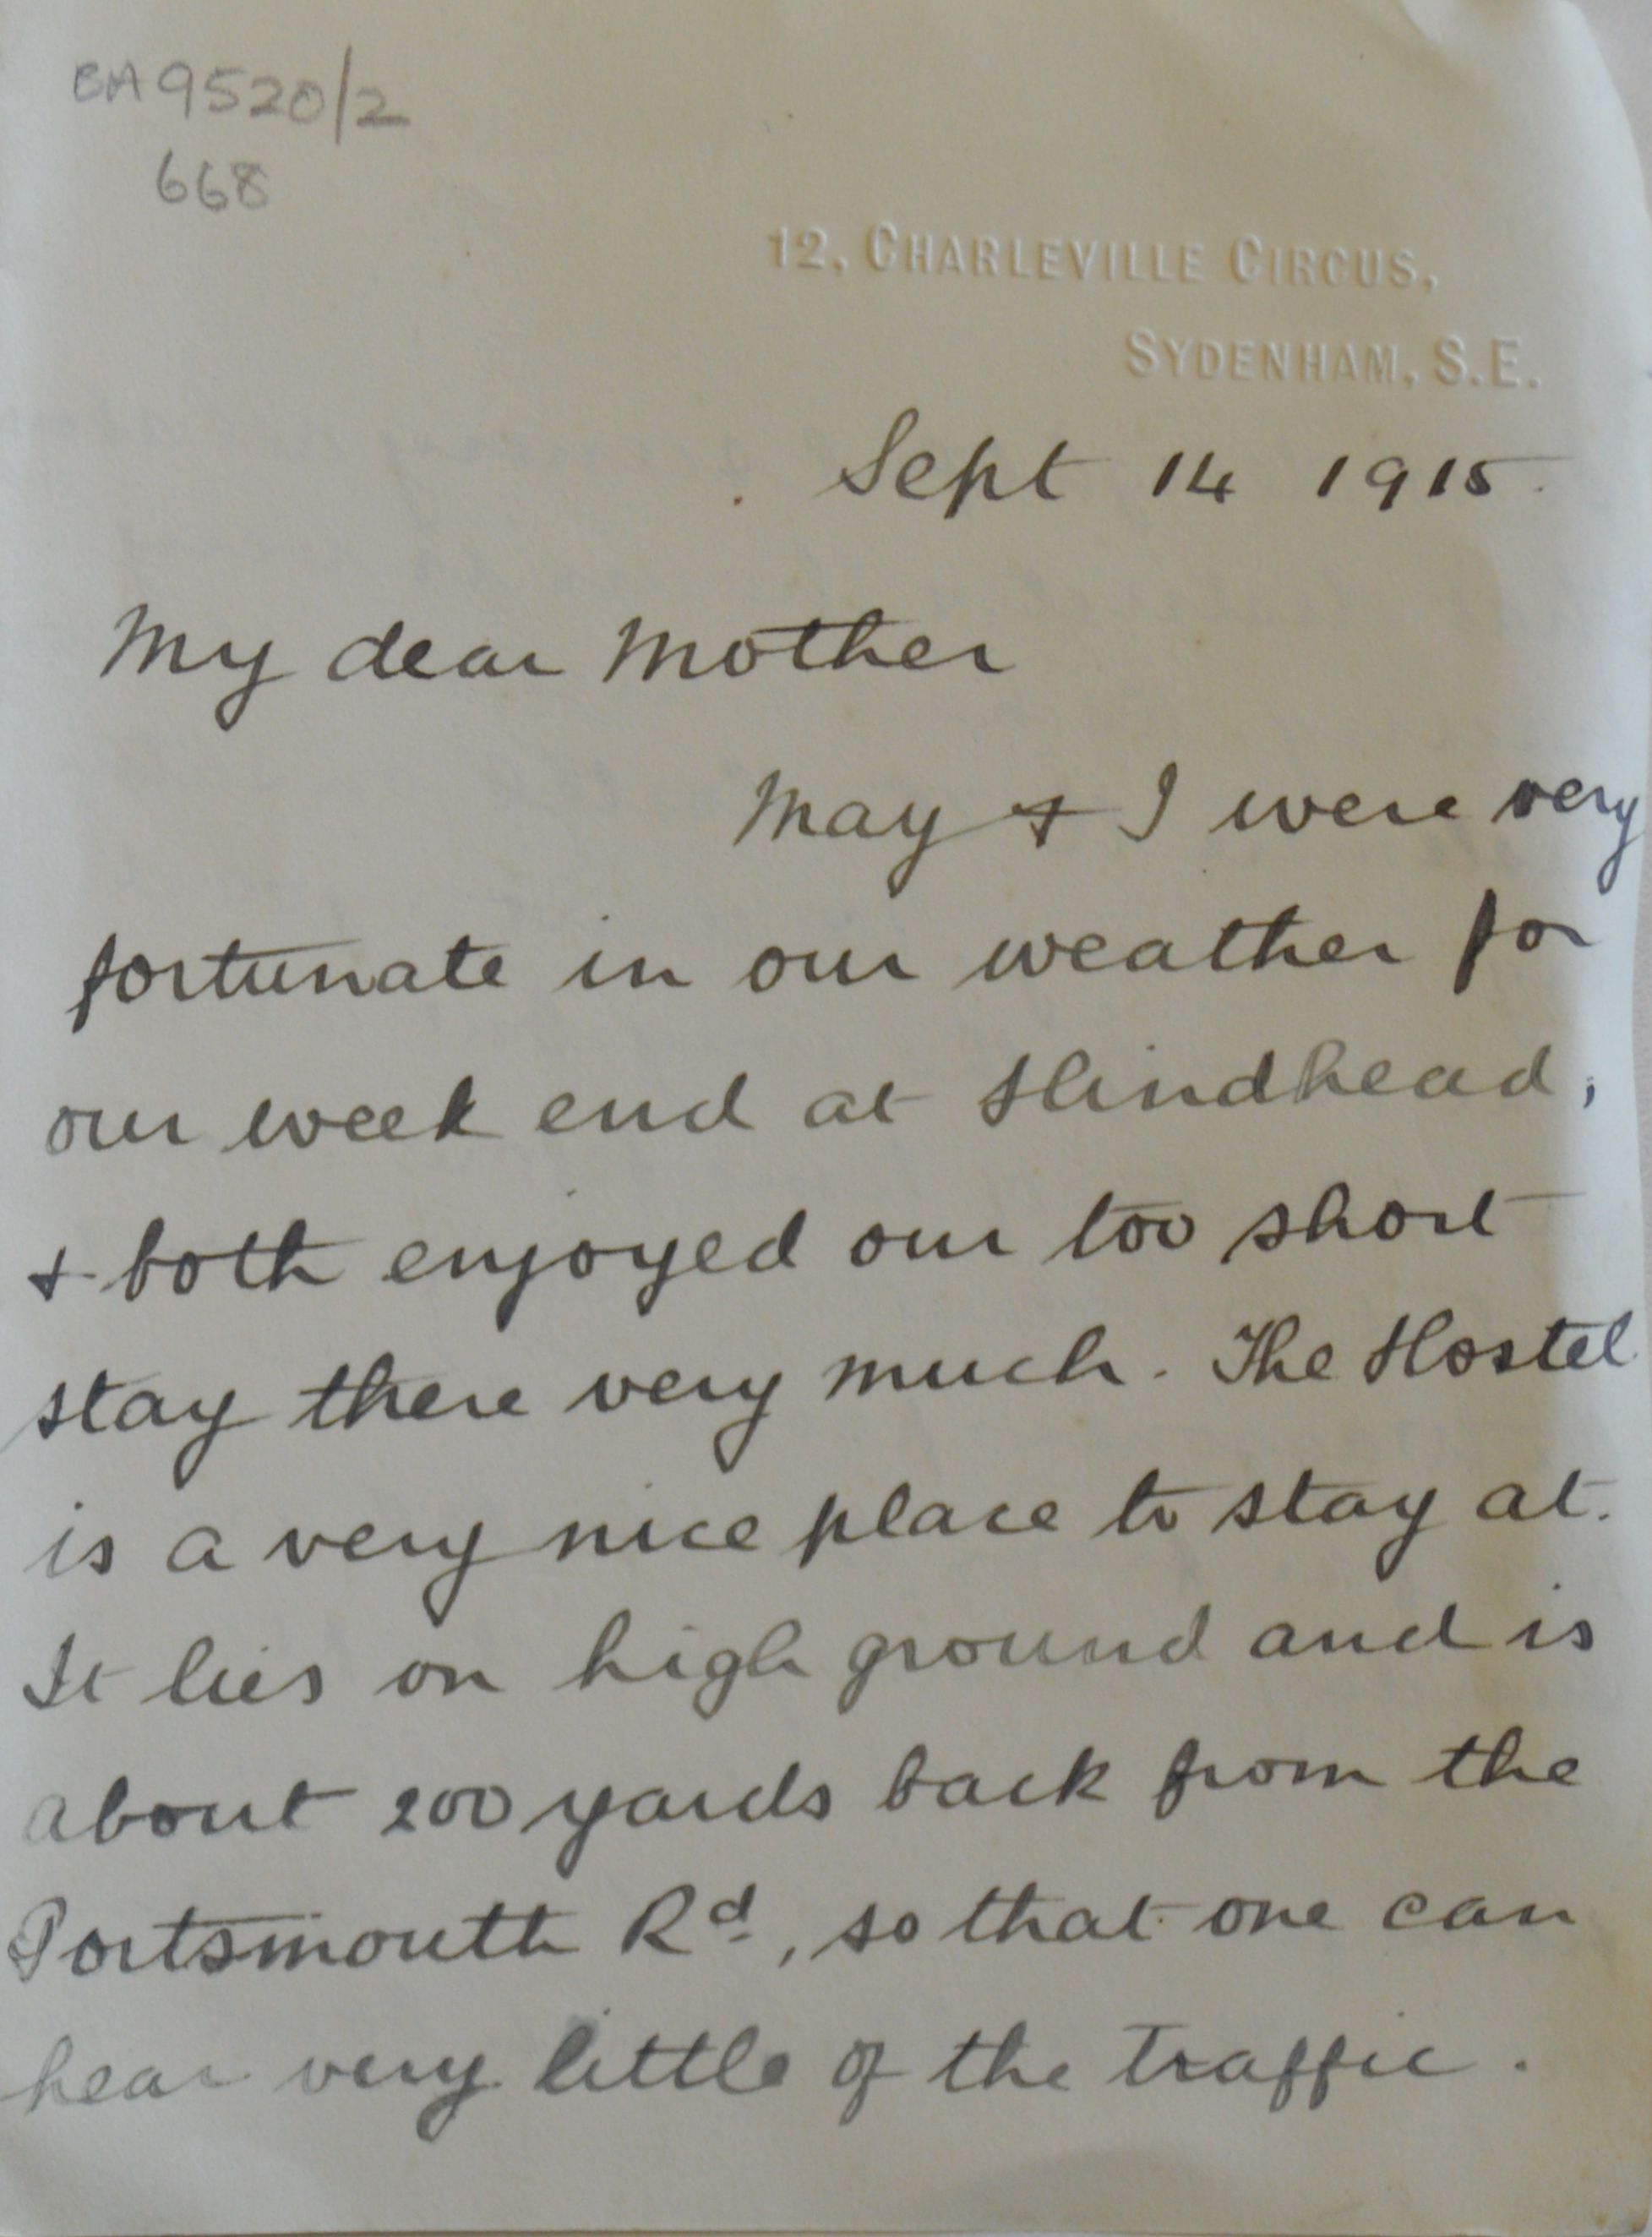 BA9520/2
668
12, CHARLEVILLE CIRCUS,
SYDENHAM, S.E.
Sept 14 1915.
My dear Mother
May & I were very
fortunate in our weather for
our week end at Hindhead,
& both enjoyed our too short
stay there very much. The Hostel
is a very nice place to stay at.
It lies on high ground and is
about 200 yards back from the
Portsmouth Rd, so that one can
hear very little of the traffic.